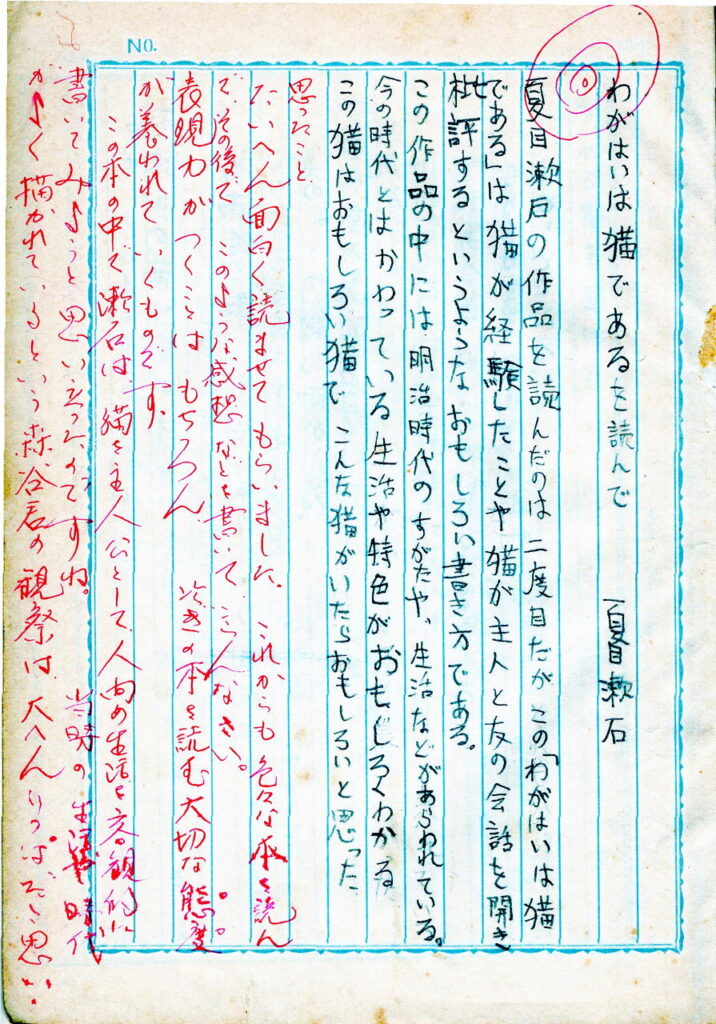 NO.
わがはいは猫であるを読んで 夏目漱石
夏目漱石の作品を読んだのは二度目だがこの「わがはいは猫
である」は猫が経験したことや猫が主人と友の会話を開き
批評するというようなおもしろい書き方である。
この作品の中には明治時代のすがたや、生活などがあらわれている。
今の時代とはかわっている生活や特色がおもしろくわかる
この猫はおもしろい猫でこんな猫がいたらおもしろいと思った
思ったこと
たいへん面白く読ませてもらいました。これからも色々な本を読ん
で、その後でこのような感想などを書いてごらんなさい。
表現力がつくことはもちろん 本を読む大切な態度
が養われていくものです。
この本の中で漱石は猫を主人公として人間の生活を客観的に
書いてみようと思い立ったのですね。当時の生活や時代
がよく描かれているという森谷君の観察は大へんりっぱだと思い